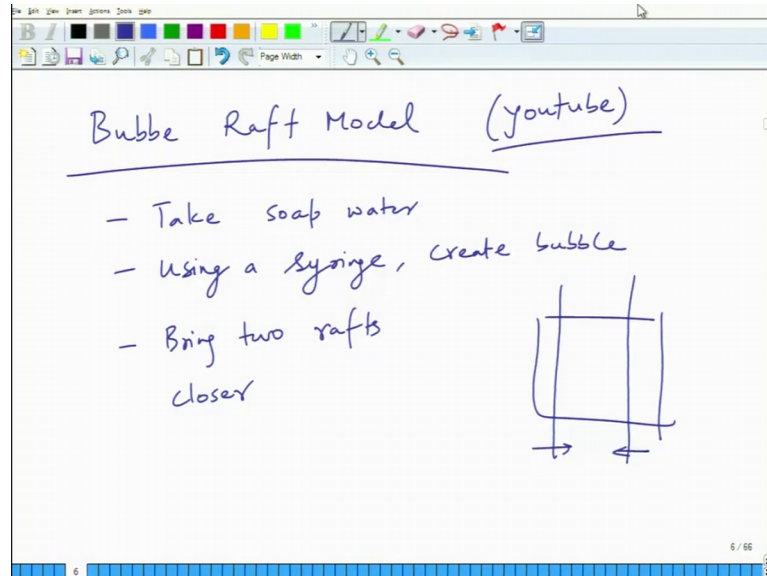 File Edit View Insert Actions Tools Help
B I
Page Width
Bubbe Raft Model (youtube)
- Take soap water
- Using a syringe, create bubble
- Bring two rafts
closer
6/66
6